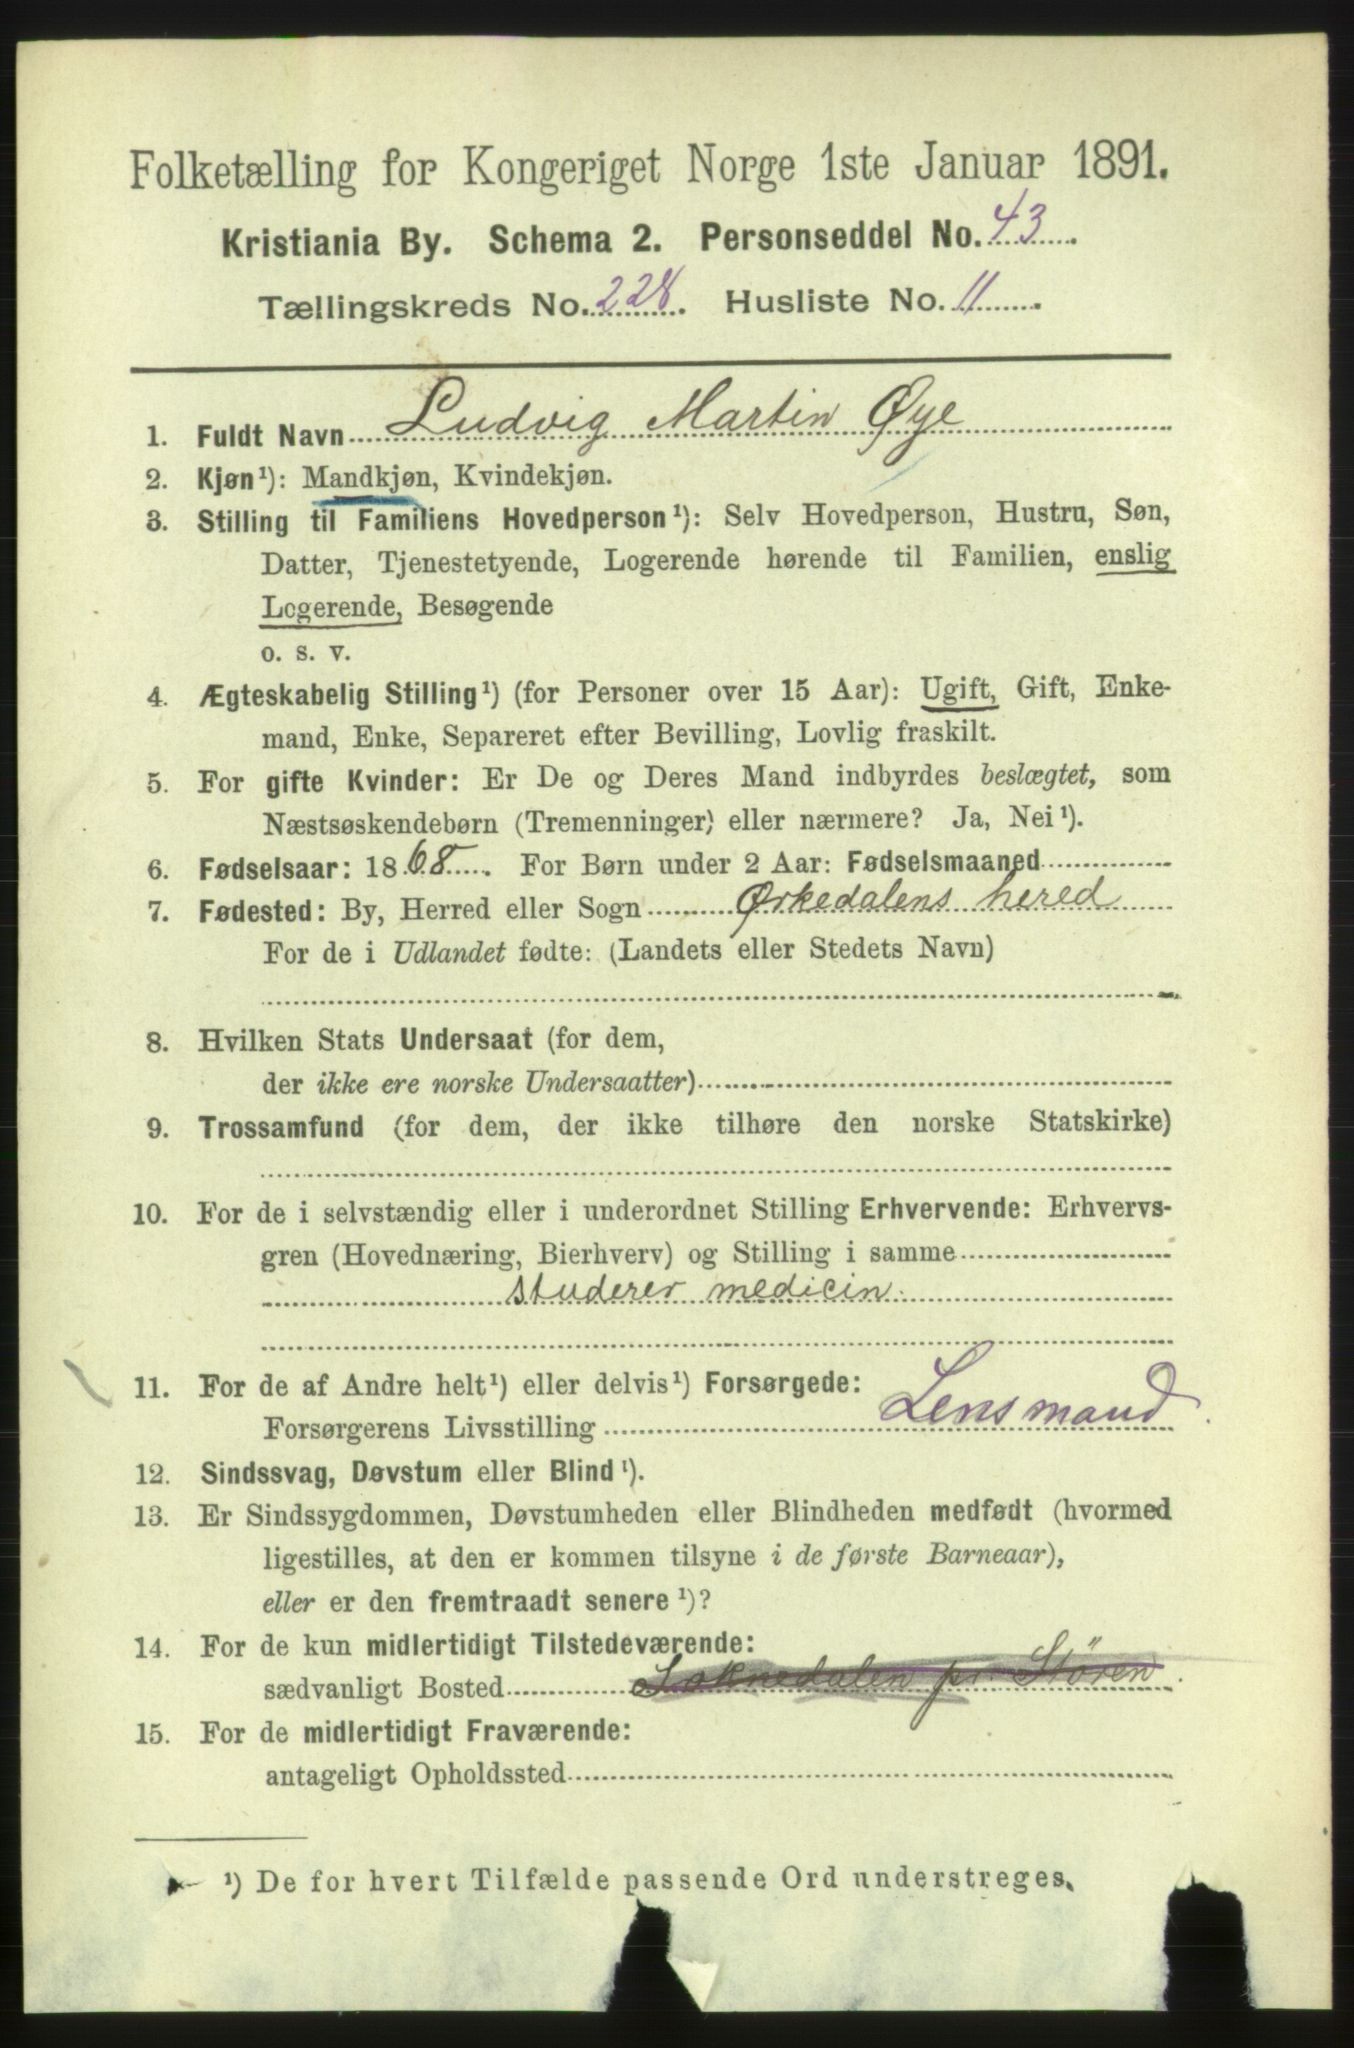 Folketælling for Kongeriget Norge 1ste Januar 1891.
Kristiania By. Schema 2. Personseddel No. 43
Tællingskreds No. 228. Husliste No. 11.
1. Fuldt Navn Ludvig Martin Øye
2. Kjøn¹): Mandkjøn, Kvindekjøn.
3. Stilling til Familiens Hovedperson¹): Selv Hovedperson, Hustru, Søn,
Datter, Tjenestetyende, Logerende hørende til Familien, enslig
Logerende, Besøgende
o. s. v.
4. Ægteskabelig Stilling¹) (for Personer over 15 Aar): Ugift, Gift, Enke-
mand, Enke, Separeret efter Bevilling, Lovlig fraskilt.
5. For gifte Kvinder: Er De og Deres Mand indbyrdes beslægtet, som
Næstsøskendebørn (Tremenninger) eller nærmere? Ja, Nei¹).
6. Fødselsaar: 1868. For Børn under 2 Aar: Fødselsmaaned
7. Fødested: By, Herred eller Sogn Ørkedalens hered
For de i Udlandet fødte: (Landets eller Stedets Navn)
8. Hvilken Stats Undersaat (for dem,
der ikke ere norske Undersaatter)
9. Trossamfund (for dem, der ikke tilhøre den norske Statskirke)
10. For de i selvstændig eller i underordnet Stilling Erhvervende: Erhvervs-
gren (Hovednæring, Bierhverv) og Stilling i samme
studerer medicin.
11. For de af Andre helt¹) eller delvis¹) Forsørgede:
Forsørgerens Livsstilling Lensmand.
12. Sindssvag, Døvstum eller Blind¹).
13. Er Sindssygdommen, Døvstumheden eller Blindheden medfødt (hvormed
ligestilles, at den er kommen tilsyne i de første Barneaar),
eller er den fremtraadt senere¹)?
14. For de kun midlertidigt Tilstedeværende:
sædvanligt Bosted Soknedalen pr. Stören.
15. For de midlertidigt Fraværende:
antageligt Opholdssted
¹) De for hvert Tilfælde passende Ord understreges.